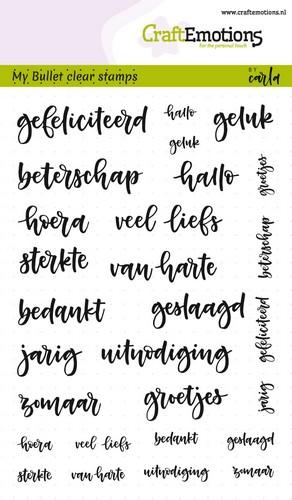 www.craftemotions.nl
CraftEmotions
For the personal touch
My Bullet clear stamps
BY
carla
gefeliciteerd
hallo
geluk
geluk
beterschap
hallo
groetjes
hoera
veel liefs
beterschap
sterkte
van harte
bedankt
geslaagd
gefeliciteerd
jarig
uitnodiging
zomaar
groetjes
jarig
hoera
veel liefs
bedankt
geslaagd
sterkte
van harte
uitnodiging
zomaar